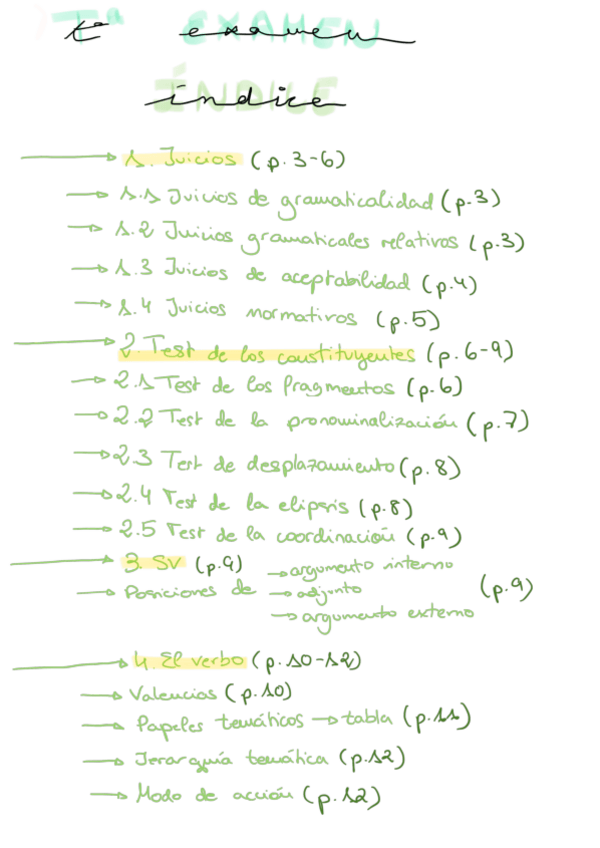 1ª EXAMEN
índice
→ 1. Juicios (p. 3-6)
→ 1.1 Juicios de gramaticalidad (p.3)
→ 1.2 Juicios gramaticales relativos (p.3)
→ 1.3 Juicios de aceptabilidad (p.4)
→ 1.4 Juicios normativos (p.5)
→ 2. Test de los constituyentes (p. 6-9)
→ 2.1 Test de los fragmentos (p.6)
→ 2.2 Test de la pronominalización (p.7)
→ 2.3 Test de desplazamiento (p.8)
→ 2.4 Test de la elipsis (p.8)
→ 2.5 Test de la coordinación (p.9)
→ 3. SV (p.9) → argumento interno
→ Posiciones de → adjunto (p.9)
→ argumento externo
→ 4. El verbo (p. 10-12)
→ Valencias (p.10)
→ Papeles temáticos → tabla (p.11)
→ Jerarquía temática (p.12)
→ Modo de acción (p.12)